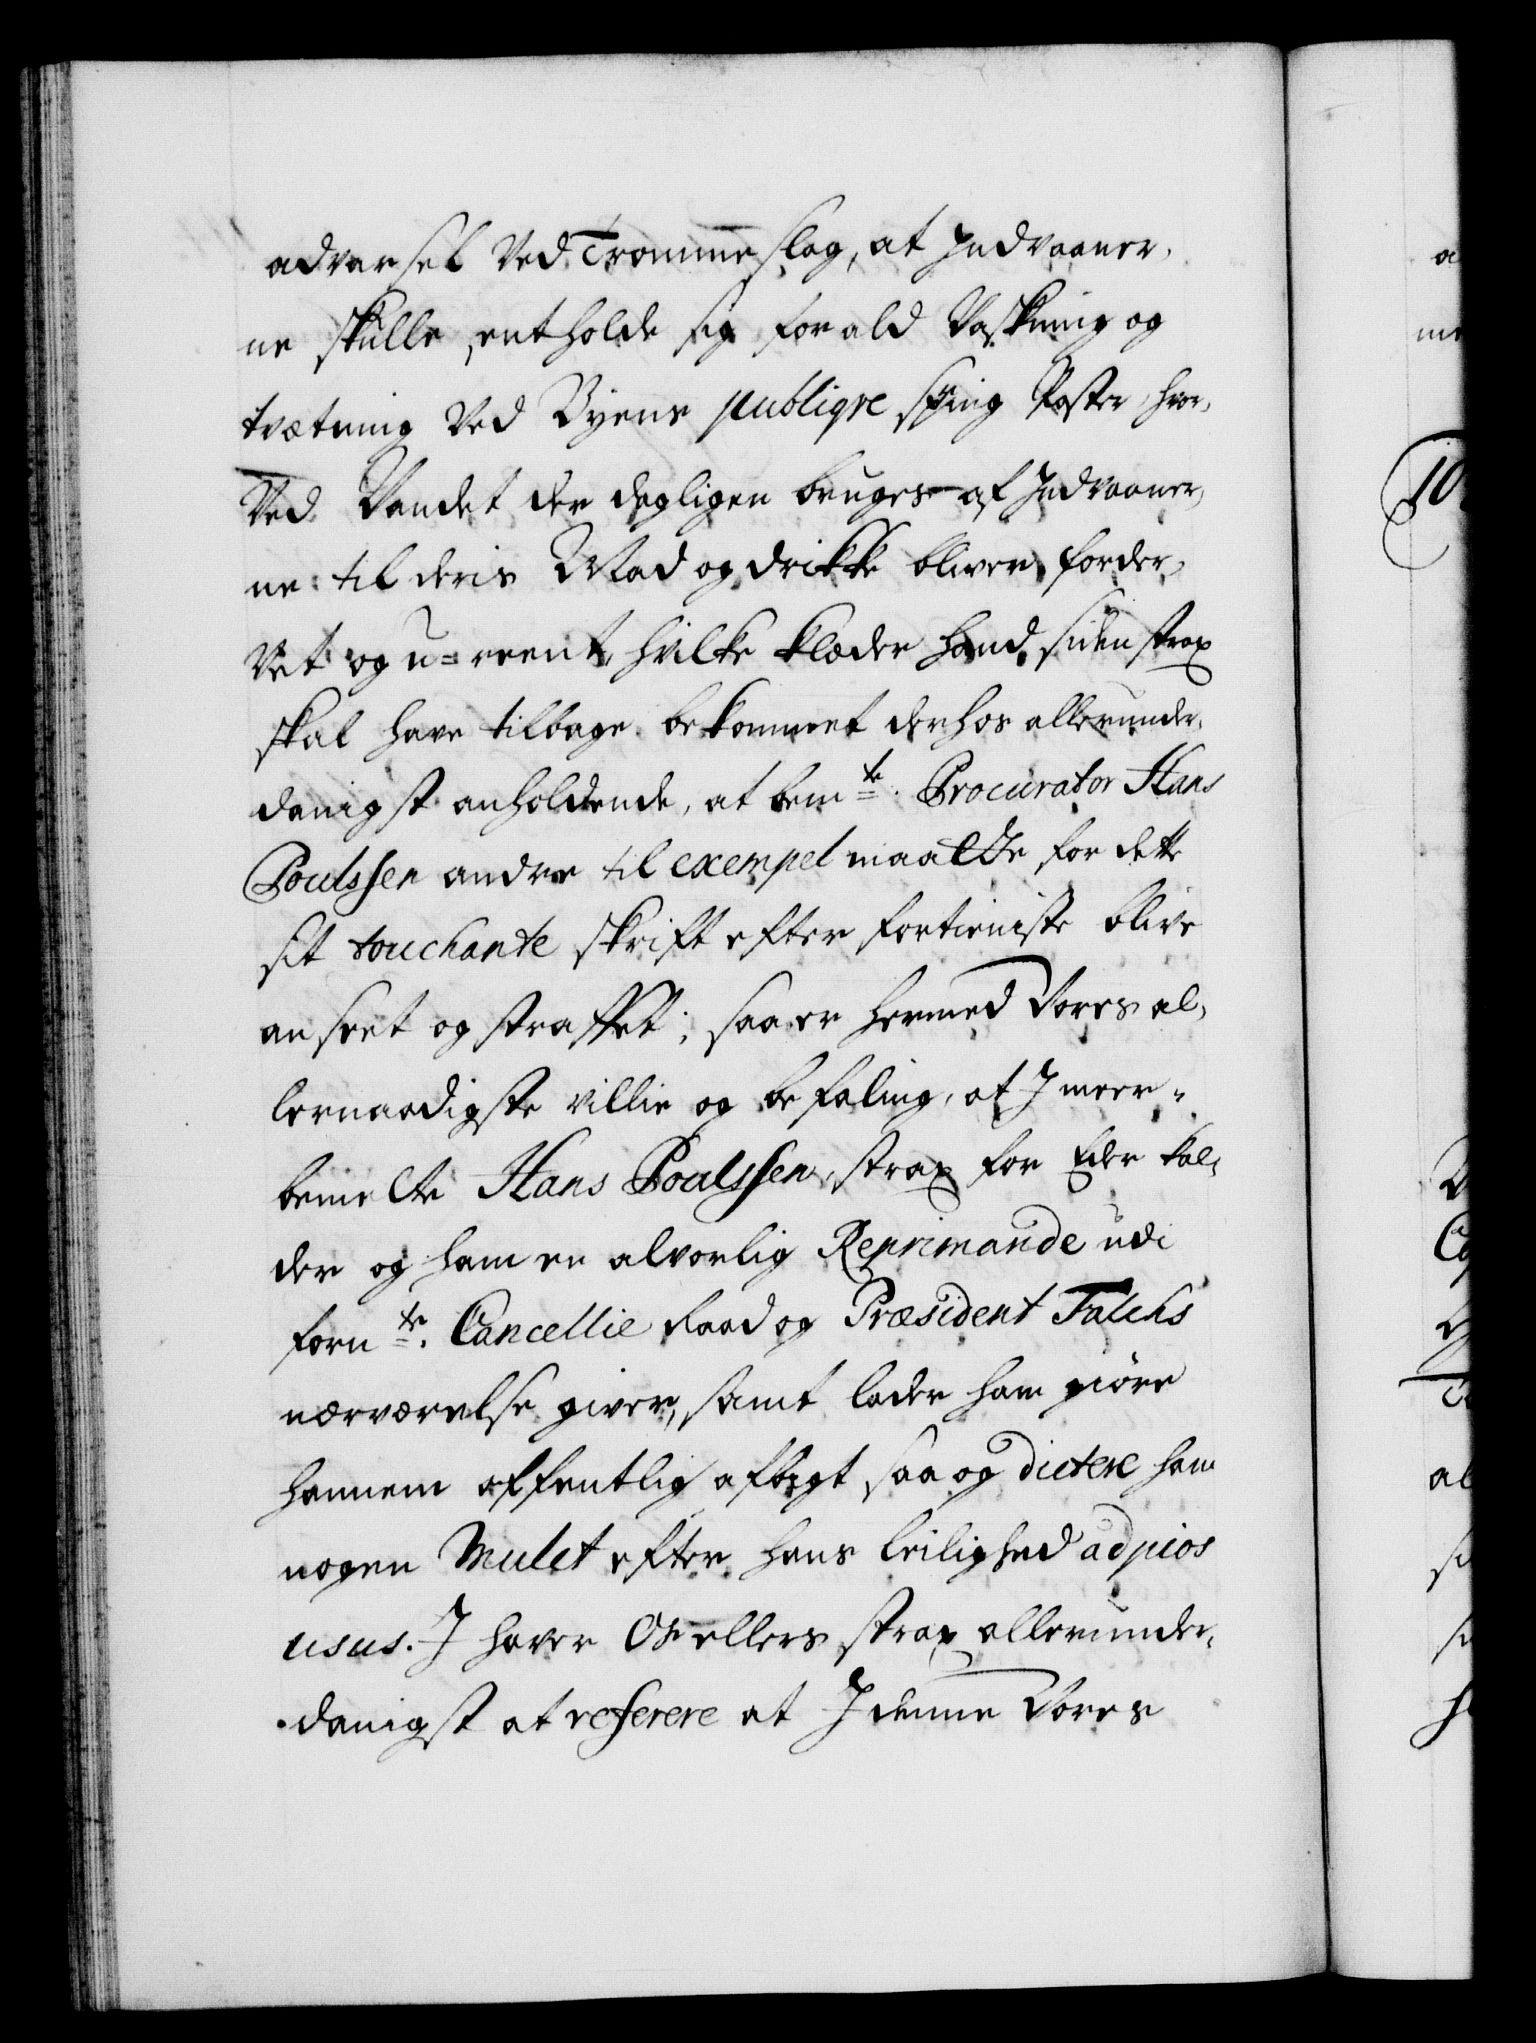 advarsel Ved Trommeslag, at Indvaaner,
ne skulle, entholde sig for ald Vaskning og
tvætning Ved Byens publiqve spring Poster, hvor,
Ved Vandet der dagligen bruges af Indvaaner,
ne til deris Mad og drikke bliver forder,
Vet og u-reent, hvilke klæder hand siden strax
skal have tilbage bekommet derhos allerunder,
danigst anholdende, at bemte. Procurator Hans
Poulssen andre til exempel maatte for dette
sit touchante skrift efter fortieniste blive
anseet og straffet; saa er hermed Vores al,
lernaadigste villie og befaling, at I meer-
bemelte Hans Poulssen, strax for Eder kal,
der og ham en alvorlig Reprimande udi
fornte. Cancellie Raad og Præsident Falchs
nærværelse giver, samt lader ham giøre
hannem offentlig afbigt saa og dictere ham
nogen Mulct efter hans leilighed ad pios
usus. I haver Os ellers strax allerunder,
danigst at referere at I denne Vores